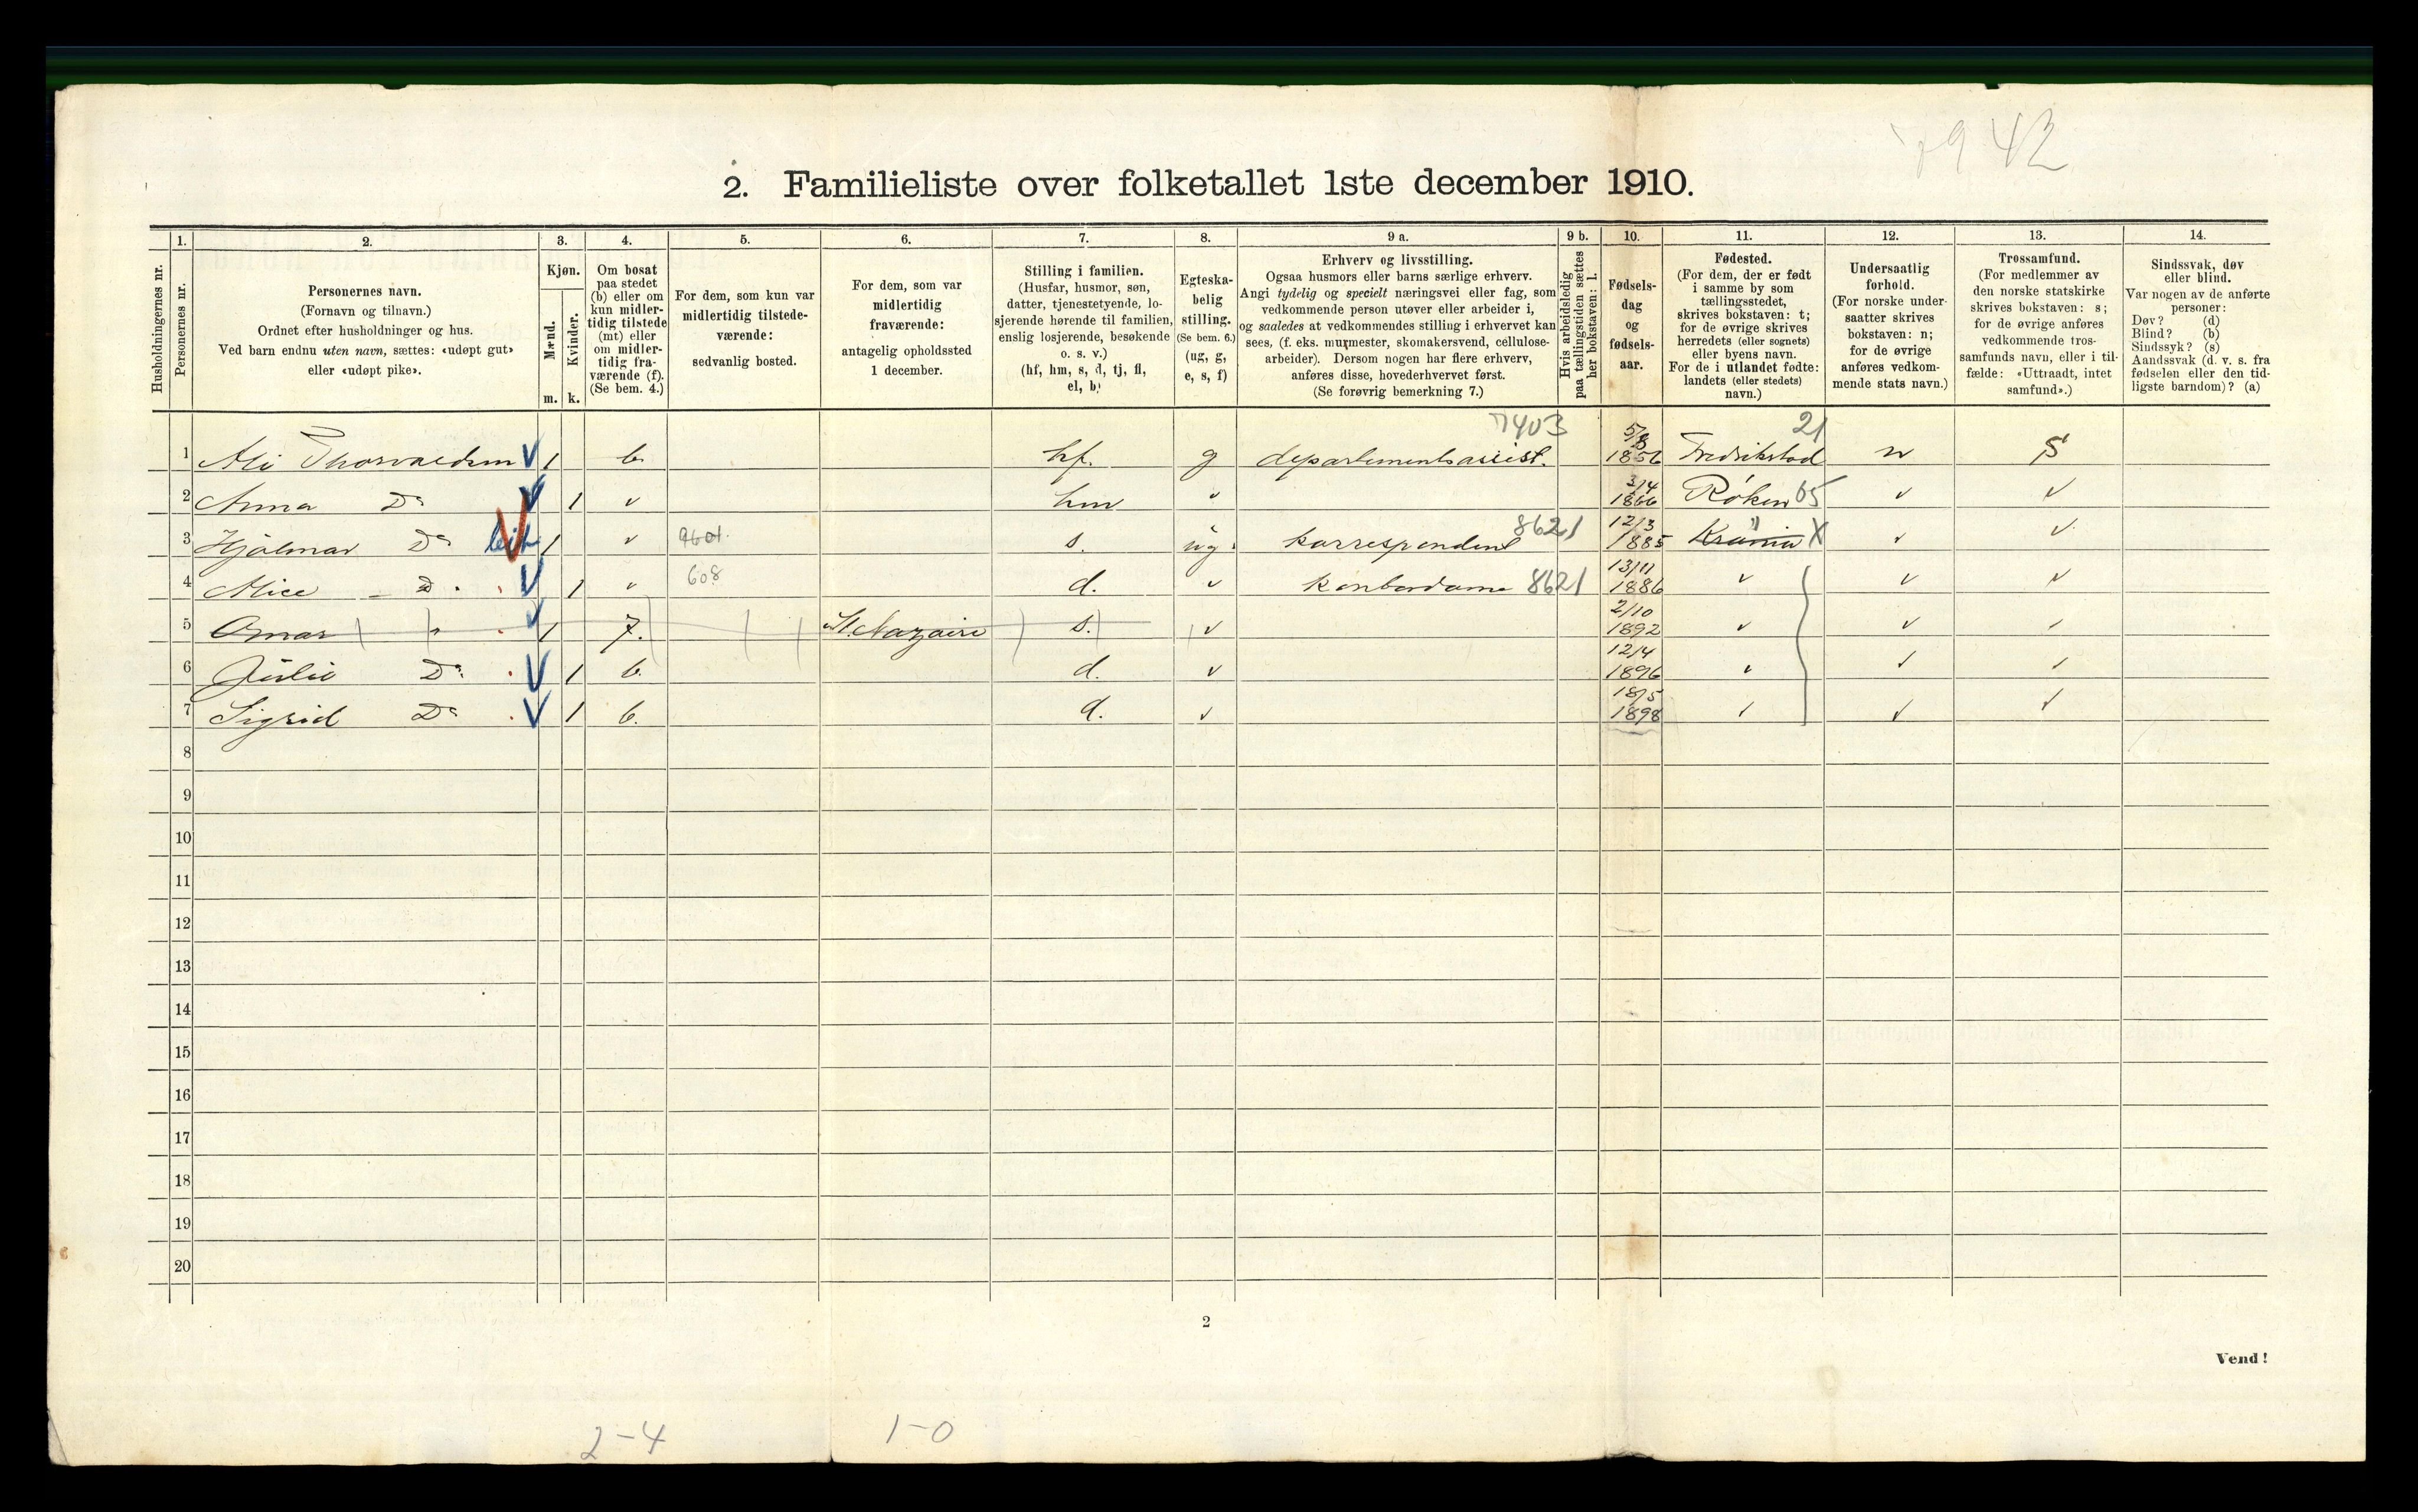 42
2. Familieliste over folketallet 1ste december 1910.
Husholdningernes nr.
1.
Personernes nr.
2.
Personernes navn.
(Fornavn og tilnavn.)
Ordnet efter husholdninger og hus.
Ved barn endnu uten navn, sættes: «udøpt gut»
eller «udøpt pike».
3.
Kjøn.
Mænd.
Kvinder.
m. k.
4.
Om bosat
paa stedet
(b) eller om
kun midler-
tidig tilstede
(mt) eller
om midler-
tidig fra-
værende (f).
(Se bem. 4.)
5.
For dem, som kun var
midlertidig tilstede-
værende:
sedvanlig bosted.
6.
For dem, som var
midlertidig
fraværende:
antagelig opholdssted
1 december.
7.
Stilling i familien.
(Husfar, husmor, søn,
datter, tjenestetyende, lo-
sjerende hørende til familien,
enslig losjerende, besøkende
o. s. v.)
(hf, hm, s, d, tj, fl,
el, b)
8.
Egteska-
belig
stilling.
(Se bem. 6.)
(ug, g,
e, s, f)
9 a.
Erhverv og livsstilling.
Ogsaa husmors eller barns særlige erhverv.
Angi tydelig og specielt næringsvei eller fag, som
vedkommende person utøver eller arbeider i,
og saaledes at vedkommendes stilling i erhvervet kan
sees, (f. eks. murmester, skomakersvend, cellulose-
arbeider). Dersom nogen har flere erhverv,
anføres disse, hovederhvervet først.
(Se forøvrig bemerkning 7.)
9 b.
Hvis arbeidsledig
paa tællingstiden sættes
her bokstaven: l.
10.
Fødsels-
dag
og
fødsels-
aar.
11.
Fødested.
(For dem, der er født
i samme by som
tællingsstedet,
skrives bokstaven: t;
for de øvrige skrives
herredets (eller sognets)
eller byens navn.
For de i utlandet fødte:
landets (eller stedets)
navn.)
12.
Undersaatlig
forhold.
(For norske under-
saatter skrives
bokstaven: n;
for de øvrige
anføres vedkom-
mende stats navn.)
13.
Trossamfund.
(For medlemmer av
den norske statskirke
skrives bokstaven: s;
for de øvrige anføres
vedkommende tros-
samfunds navn, eller i til-
fælde: «Uttraadt, intet
samfund».)
14.
Sindssvak, døv
eller blind.
Var nogen av de anførte
personer:
Døv? (d)
Blind? (b)
Sindssyk? (s)
Aandssvak (d. v. s. fra
fødselen eller den tid-
ligste barndom)? (a)
1 Thorvaldsen 1 b. hf. g 7403 departementsassist. 5/8 1856 Fredrikstad 21 n S
2 Anna Do 1 hm 3/4 1866 Røken 65
3 Hjalmar Do 1 s. ug. korrespondent 8621 12/3 1885 Krania X
4 Alice D 1 608 d. kontordame 8621 13/11 1886
5 Omar 1 f. St. Nazaire s. 2/10 1892
6 Julie Do 1 b. d. 12/4 1896
7 Sigrid Do 1 b. d. 18/5 1898
8
9
10
11
12
13
14
15
16
17
18
19
20
2
Vend!
2-4 1-0